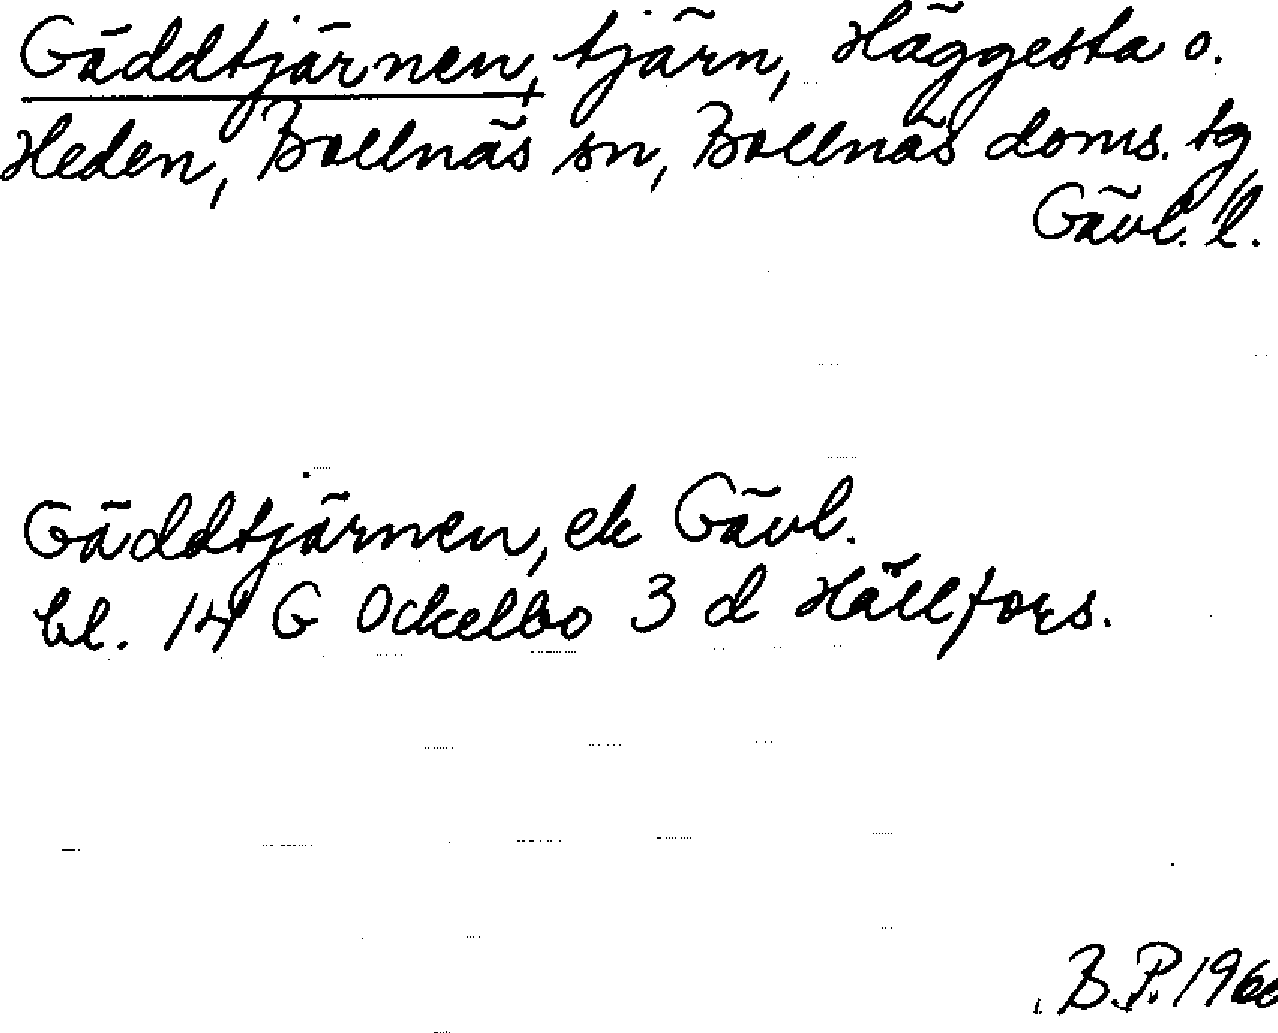 Gäddtjärnen, tjärn, Häggesta o.
Heden, Bollnäs sn, Bollnäs doms. tg,
Gävl. l.
Gäddtjärnen, ek Gävl.
bl. 14 G Ockelbo 3 d Hällfors.
B.P. 1966